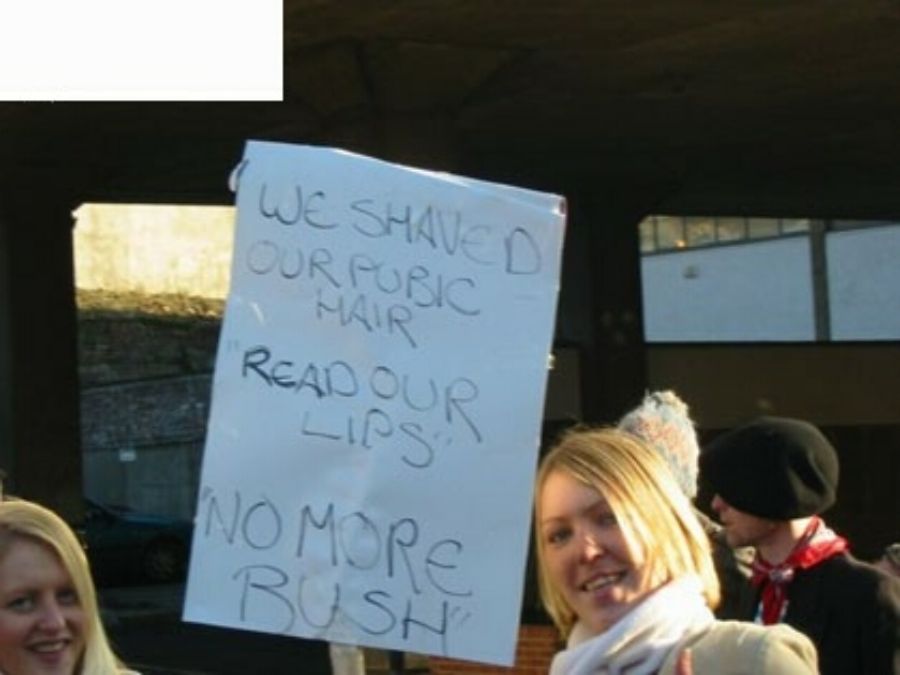 WE SHAVED
OUR PUBIC
HAIR
"READ OUR
LIPS"
"NO MORE
BUSH"